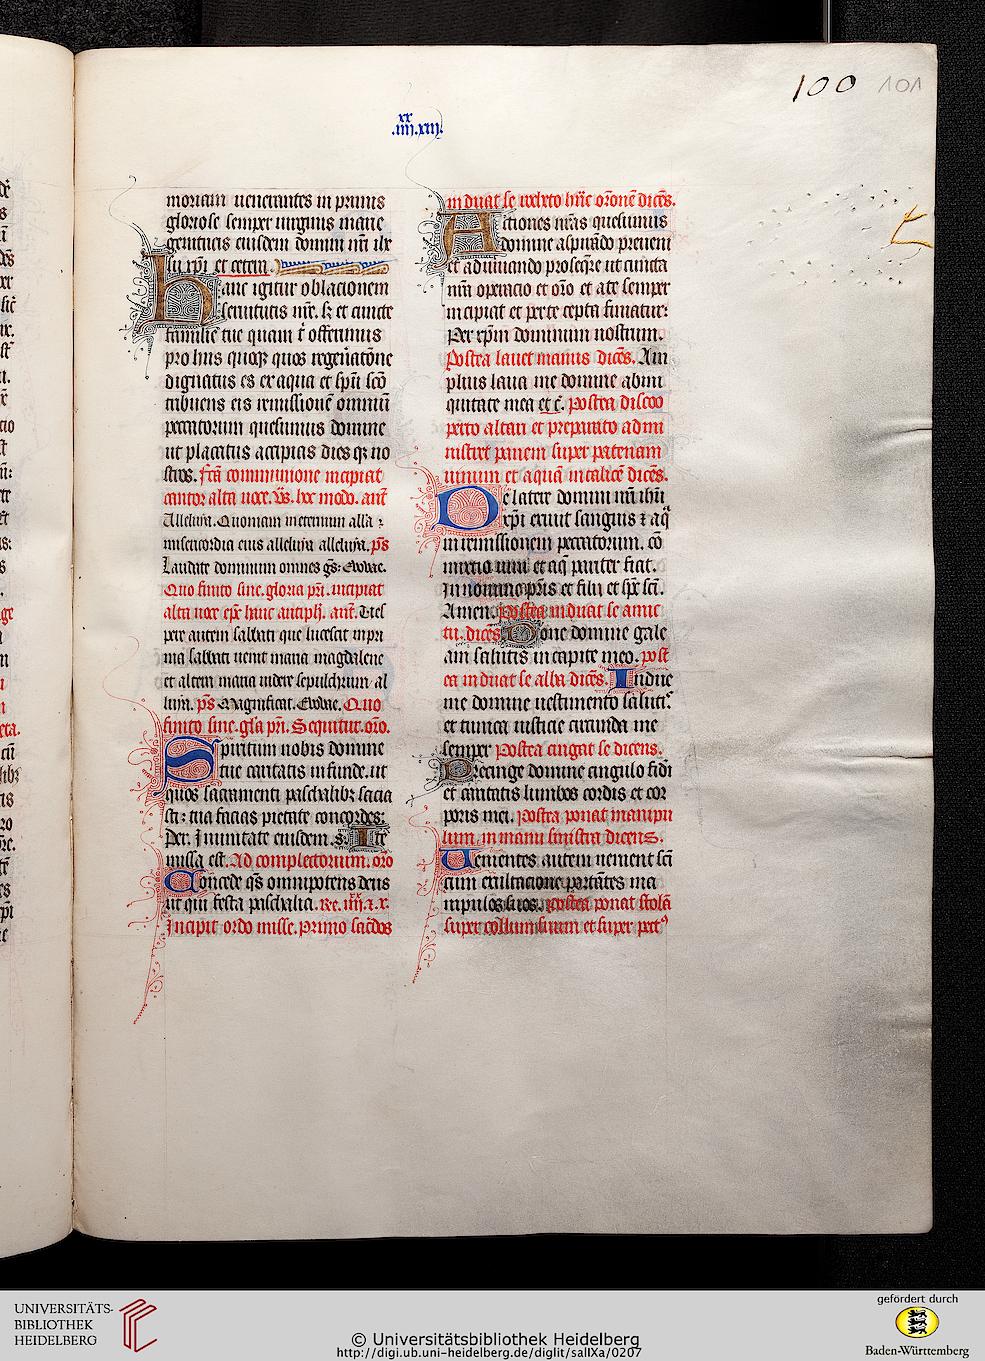 100 101
.iiii.xiii.
xx
moriam uenerantes in primis
gloriose semper uirginis marie
genitricis eiusdem domini nr̄i ih̄
su xp̄i et cetera.
Hanc igitur oblacionem
seruitutis nr̄e. sꝫ et cuncte
familie tue quam t̄ offerimus
pro hiis quoqꝫ quos regen̄atōne
dignatus es ex aqua et sp̄u sc̄o
tribuens eis remissionē omniū
peccatorum quesumus domine
ut placatus accipias dies qꝫ no
stros. fc̄a communione incipiat
cantor alta uoce. v̄s. hoc modo. ant̄
Alleluya. Quoniam in eternum alla ;
misericordia eius alleluya alleluya. p̄s
Laudate dominum omnes ḡs: Evovae.
Quo finito sine. gloria pr̄i. incipiat
alta uoce ep̄c hanc antiph̄. ant̄. Ves
pere autem sabbati que lucescit in pri
ma sabbati uenit maria magdalene
et altera maria uidere sepulchrum al
luya. p̄s Magnificat. Evovae. Quo
finito sine. gl̄a pr̄i. Sequitur. or̄o.
Spiritum nobis domine
tue caritatis infunde. ut
quos sacramentis paschalibꝫ sacia
sti: tua facias pietate concordes:
Per. In unitate eiusdem. s. Ite
missa est. Ad completorium. or̄o
Concede q̄s omnipotens deus
ut qui festa paschalia.
Incipit ordo misse. Primo sac̄dos
induat se
Actiones nr̄as quesumus
domine aspirādo preueni
et adiuuando proseq̄re ut cuncta
nr̄a operacio et or̄o et a te semper
incipiat et per te cepta finiatur:
Per xp̄m dominum nostrum.
Postea lauet manus dicēs. Am
plius laua me domine ab ini
quitate mea et c̄. Postea disco
perto altari et preparato ad mi
nistret panem super patenam
uinum et aquā in calicē dicēs.
De latere domini nr̄i ih̄u
xp̄i exiuit sanguis ⁊ aq̄
in remissionem peccatorum. cō
mixtio uini et aq̄ pariter fiat.
In nomine p̄ris et filii et sp̄c sc̄i.
Amen. Postea induat se amic
tū. dicēs Pone domine gale
am salutis in capite meo. post
ea induat se alba dicēs. Indue
me domine uestimento salut:
et tunica iusticie circunda me
semper Postea cingat se dicens.
Precinge domine cingulo fidei
et caritatis lumbos cordis et cor
poris mei. Postea ponat manipu
lum. in manu sinistra dicens.
Uenientes autem uenient cū
cum exultacione portātes ma
nipulos suos. Postea ponat stolā
super collum suum et super pect᷒
UNIVERSITÄTS-
BIBLIOTHEK
HEIDELBERG
© Universitätsbibliothek Heidelberg
http://digi.ub.uni-heidelberg.de/diglit/salIXa/0207
gefördert durch
Baden-Württemberg